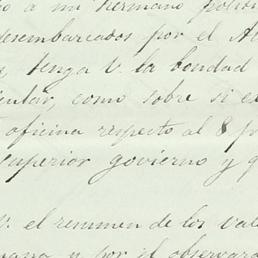 a mi hermano
desembarcados por el
tenga V. la bondad
como sobre si
oficina respecto al 8 p
superior govierno y
el resumen de los
y por él observará